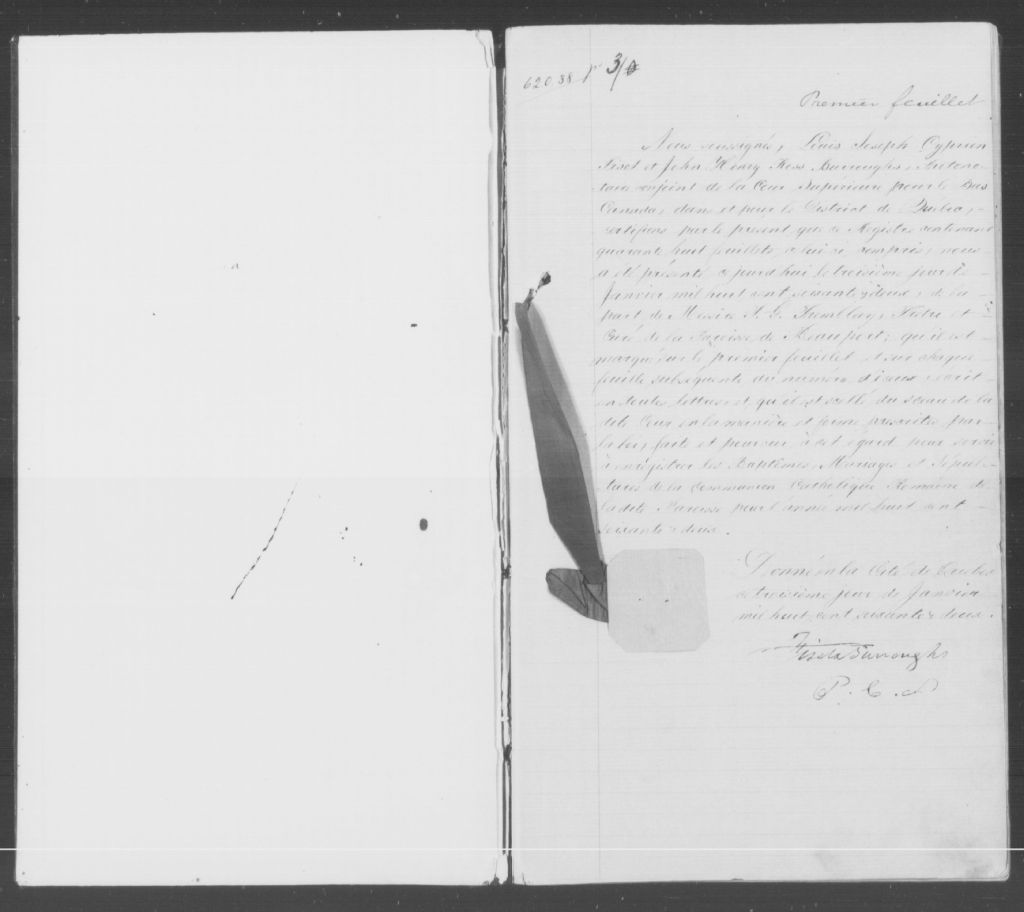 62038 P 3/0
Premier feuillet
Nous soussignés, Louis Joseph Cyprien
Fiset et John Henry Ross Burroughs, Protono-
taire conjoint de la Cour Supérieure pour le Bas
Canada, dans et pour le District de Québec,
certifions par le présent que ce Régistre contenant
quarante huit feuillets, celui ci compris, nous
a été présenté ce jourd'hui le troisième jour de
Janvier mil huit cent soixante & deux, de la
part de Messire Tremblay, Prêtre et
Curé de la Paroisse de Beauport; qu'il est
marqué sur le premier feuillet et sur chaque
feuille subséquente du numéro d'iceux écrit
en toutes lettres et qu'il est scellé du sceau de la
dite Cour en la manière et forme prescrites par
la loi, faite et pourvue à cet égard pour servir
à enrégistrer les Baptêmes, Mariages et Sépul-
tures de la communion Catholique Romaine de
la dite Paroisse pour l'année mil huit cent
soixante & deux.
Donné en la Cité de Québec
ce troisième jour de Janvier
mil huit cent soixante & deux.
Fiset & Burroughs
P. C. S